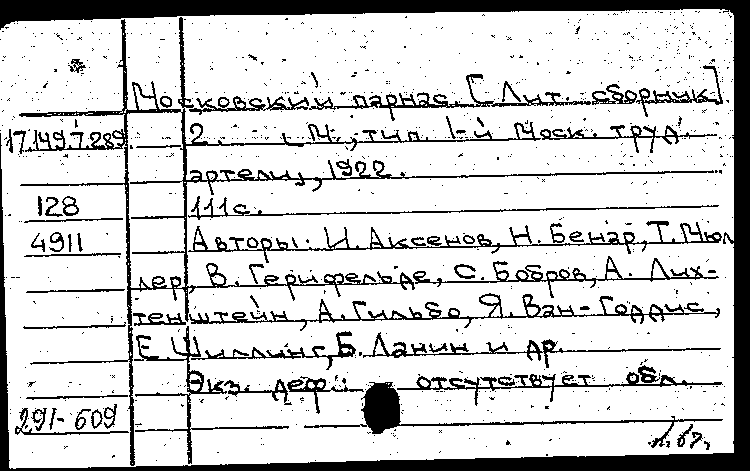 Московский парнас. [Лит. сборник].
17.149.7.289 2. М., тип. 1-й Моск. труд.
артели, 1922.
128 111 с.
4911 Авторы: И. Аксенов, Н. Бенар, Т. Мюл
лер, В. Герифельде, С. Бобров, А. Лих-
тенштейн, А. Гильбо, Я. Ван-Годдис,
Е Шиллинг, Б. Лапин и др.
Экз. деф.: отсутствует обл.
291-609